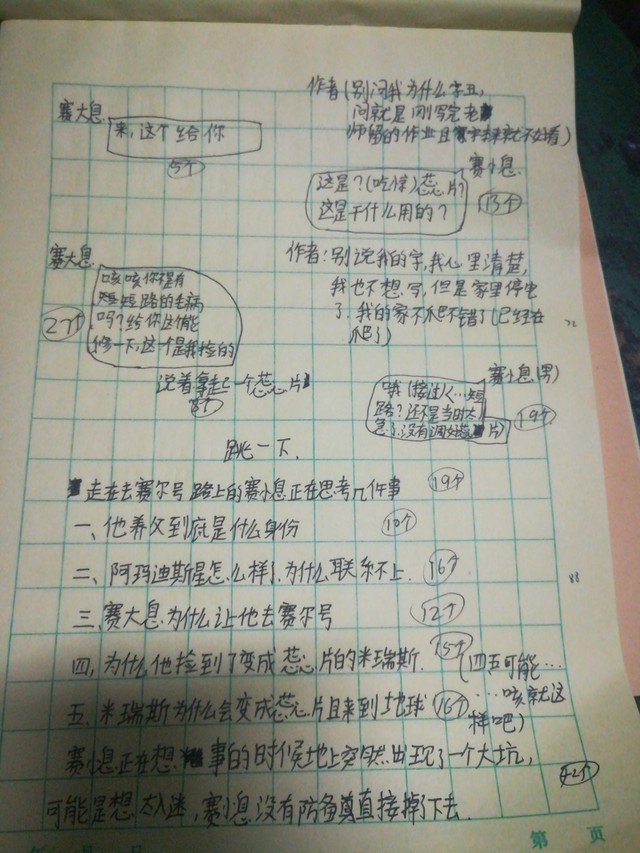 作者(别问我为什么字丑,
问就是刚写完老
师留的作业且字本来就不好看)
赛大息
来,这个给你
5个
赛小息
这是?(吃惊)蕊片?
这是干什么用的?
13个
作者:别说我的字,我心里清楚,
我也不想写,但是家里停电
了.我的家不爬不错了(已经在
爬了)
赛大息
咳咳你不是有
短短路的毛病
吗?给你这个能
修一下,这个是我捡的
27个
说着拿起一个蕊片
8个
赛小息(男)
哦(接过)…短
路?还不是当时太
急了,没有调好蕊片)
19个
跳一下.
走在去赛尔号路上的赛小息正在思考几件事
19个
一、他养父到底是什么身份
10个
二、阿玛迪斯星怎么样了.为什么联系不上.
16个
三、赛大息为什么让他去赛尔号
12个
四,为什么他捡到了变成蕊片的米瑞斯.
15个
(四五可能…
五、米瑞斯为什么会变成蕊片且来到地球
16个
…咳就这
样吧)
赛小息正在想事的时候地上突然出现了一个大坑,
可能是想太入迷,赛小息没有防备真直接掉了下去.
42个
第 页